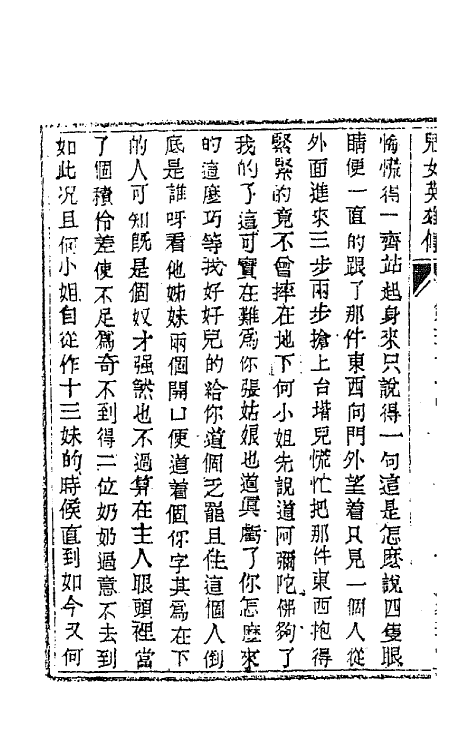 兒女英雄傳
悔慌得一齊站起身來只說得一句這是怎麽說四隻眼
睛便一面的跟了那件東西向門外望着只見一個人從
外面進來三步兩步搶上台堦兒慌忙把那件東西抱得
緊緊的竟不曾摔在地下何小姐先說道阿彌陀佛夠了
我的了這可實在難爲你張姑娘也道眞虧了你怎麽來
的這麼巧等我好好兒的給你道個乏罷且住這個人倒
底是誰呀看他姊妹兩個開口便道着個你字其爲在下
的人可知旣是個奴才强煞也不過算在主人眼頭裡當
了個積伶差使不足爲奇不到得二位奶奶過意不去到
如此况且何小姐自從作十三妹的時候直到如今又何